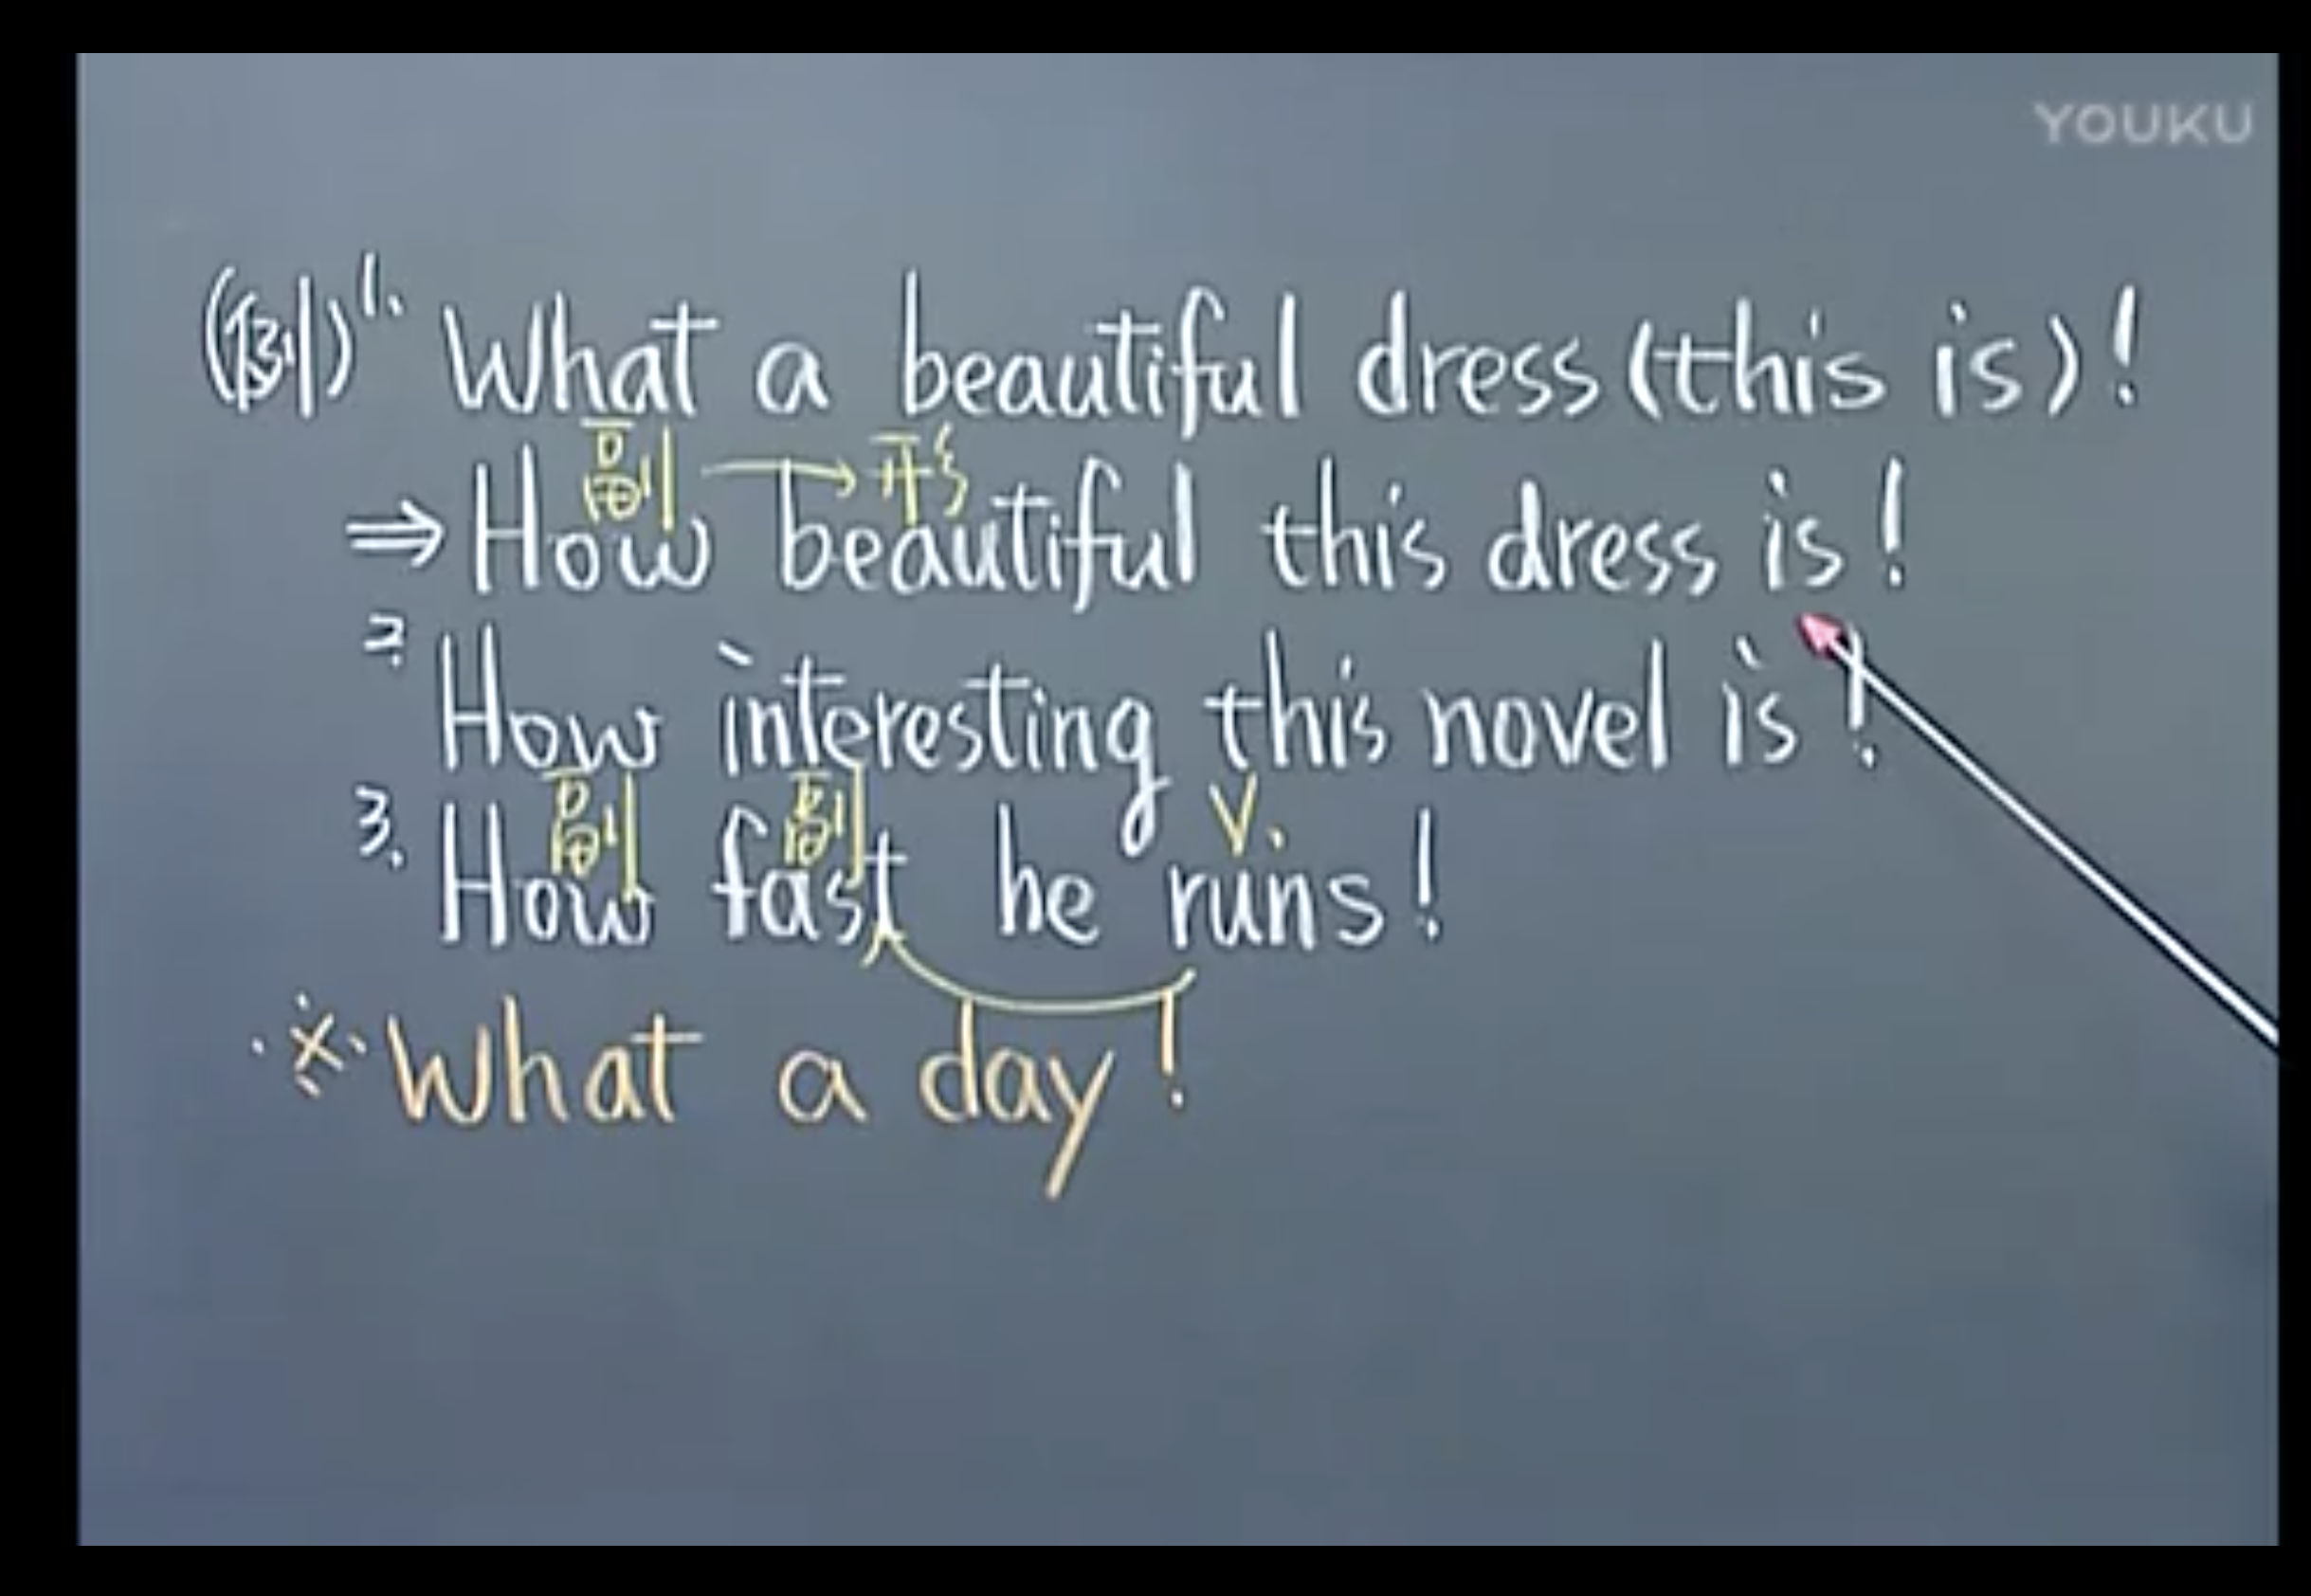 YOUKU
(例)1. What a beautiful dress (this is)!
副 → 形
⇒ How beautiful this dress is!
2. How interesting this novel is!
副 副 V.
3. How fast he runs!
※ What a day!